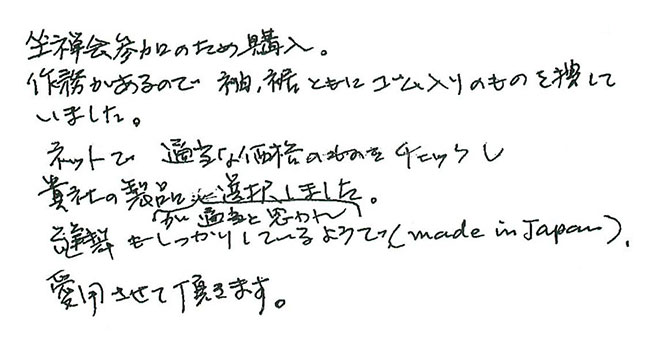 坐禅会参加のため購入。
作務があるので 袖,裾ともにゴム入りのものを捜して
いました。
ネットで 適当な価格のものをチェックし
貴社の製品に選択しました。
が適当と思われ
縫製もしっかりしているようで(made in Japan).
愛用させて頂きます。